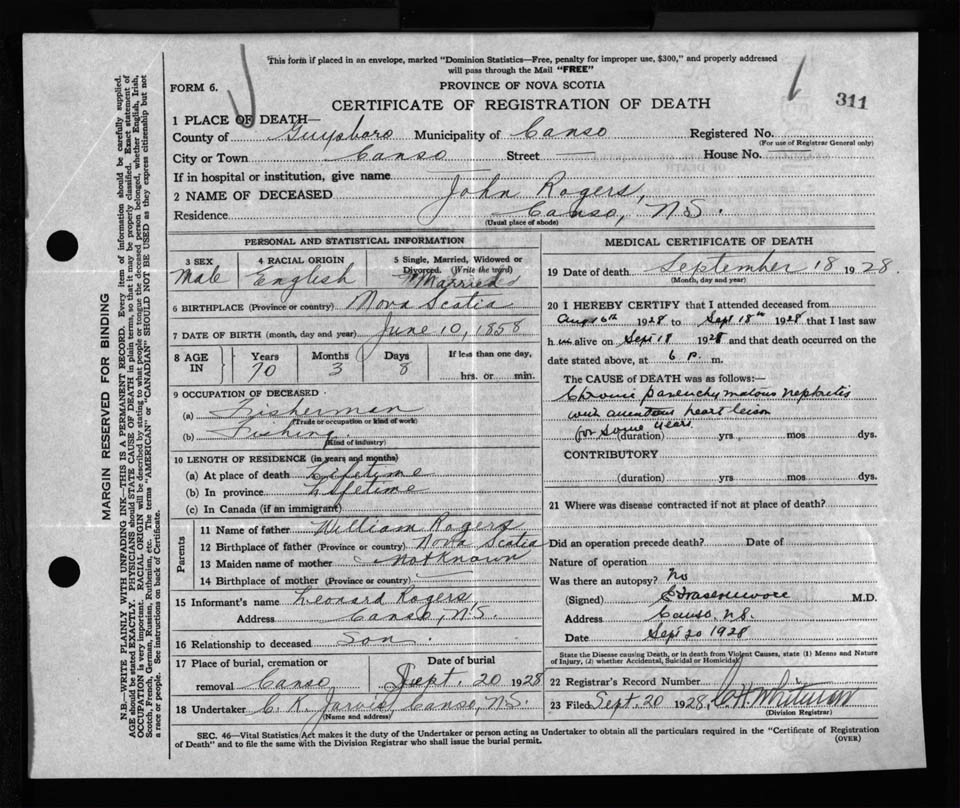 This form if placed in an envelope, marked "Dominion Statistics—Free, penalty for improper use, $300," and properly addressed
will pass through the Mail "FREE"
FORM 6.
PROVINCE OF NOVA SCOTIA
CERTIFICATE OF REGISTRATION OF DEATH
311
1 PLACE OF DEATH—
County of Guysboro Municipality of Canso Registered No.
(For use of Registrar General only)
City or Town Canso Street — House No. —
If in hospital or institution, give name —
2 NAME OF DECEASED John Rogers,
Residence Canso, N.S.
(Usual place of abode)
MARGIN RESERVED FOR BINDING
N.B.—WRITE PLAINLY WITH UNFADING INK—THIS IS A PERMANENT RECORD. Every item of information should be carefully supplied.
AGE should be stated EXACTLY. PHYSICIANS should STATE CAUSE OF DEATH in plain terms, so that it may be properly classified. Exact statement of
OCCUPATION is very important. RACIAL ORIGIN will be described by stating to what people or tongue the deceased person belonged, whether English, Irish,
Scotch, French, German, Russian, Ruthenian, etc. The terms "AMERICAN" or "CANADIAN" SHOULD NOT BE USED as they express citizenship but not
a race or people. See instructions on back of Certificate.
PERSONAL AND STATISTICAL INFORMATION
3 SEX
Male
4 RACIAL ORIGIN
English
5 Single, Married, Widowed or
Divorced. (Write the word)
Married
6 BIRTHPLACE (Province or country) Nova Scotia
7 DATE OF BIRTH (month, day and year) June 10, 1858
8 AGE IN
Years Months Days If less than one day,
70 3 8 hrs. or min.
9 OCCUPATION OF DECEASED
(a) Fisherman
(Trade or occupation or kind of work)
(b) Fishing.
(Kind of industry)
10 LENGTH OF RESIDENCE (in years and months)
(a) At place of death Lifetime
(b) In province Lifetime
(c) In Canada (if an immigrant)
Parents
11 Name of father William Rogers
12 Birthplace of father (Province or country) Nova Scotia
13 Maiden name of mother Not Known
14 Birthplace of mother (Province or country) —
15 Informant's name Leonard Rogers,
Address Canso, N.S.
16 Relationship to deceased Son.
17 Place of burial, cremation or
removal Canso
Date of burial
Sept. 20 1928
18 Undertaker C. K. Jarvis, Canso, N.S.
(Name and address)
MEDICAL CERTIFICATE OF DEATH
19 Date of death September 18 1928
(Month, day and year)
20 I HEREBY CERTIFY that I attended deceased from
Aug 16th 1928 to Sept 18th 1928 that I last saw
h im alive on Sept 18 1928 and that death occurred on the
date stated above, at 6 p. m.
The CAUSE OF DEATH was as follows:—
Chronic parenchymatous nephritis
with heart lesion
for some years.
(duration) yrs. mos dys.
CONTRIBUTORY
(duration) yrs mos dys.
21 Where was disease contracted if not at place of death?
Did an operation precede death? Date of
Nature of operation
Was there an autopsy? No
(Signed) M.D.
Address Canso. N.S.
Date Sept 20 1928
State the Disease causing Death, or in death from Violent Causes, state (1) Means and Nature
of Injury, (2) whether Accidental, Suicidal or Homicidal.
22 Registrar's Record Number
23 Filed Sept. 20 1928,
(Division Registrar)
SEC. 46—Vital Statistics Act makes it the duty of the Undertaker or person acting as Undertaker to obtain all the particulars required in the "Certificate of Registration
of Death" and to file the same with the Division Registrar who shall issue the burial permit.
(OVER)